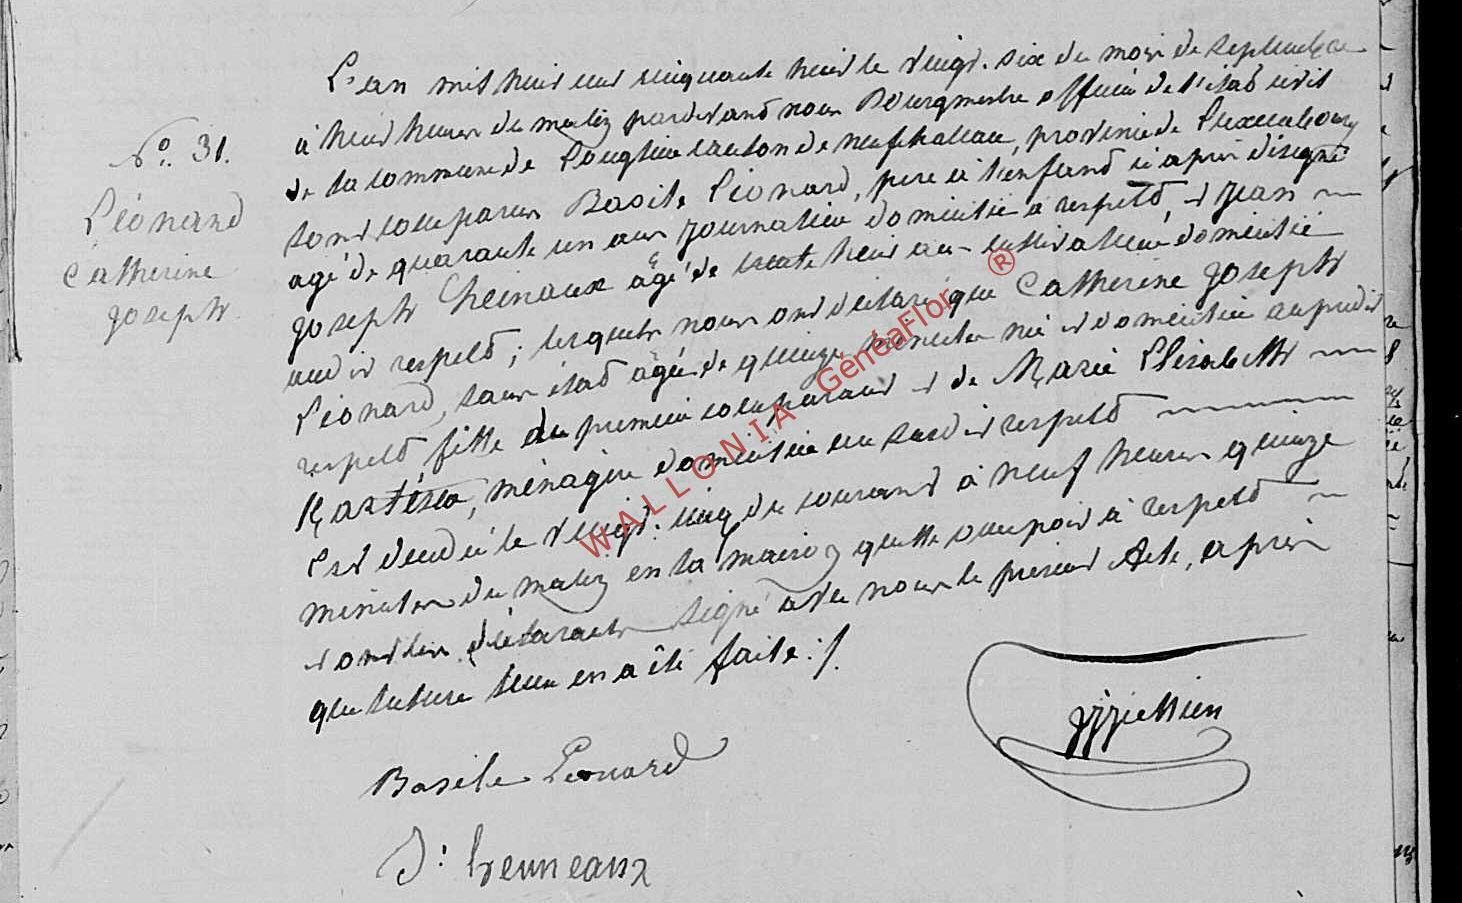 L'an mil huit cent cinquante huit le vingt-six du mois de septembre
à huit heures du matin pardevant nous Bourgmestre officier de l'état civil
de la commune de Longlier canton de neufchateau, province de Luxembourg
sont comparus Basile Léonard, pere à l'enfant ci après désigné
agé de quarante un ans journalier domicilié à respelt, et jean
joseph Cheinaux agé de trente huit ans cultivateur domicilié
audit respelt ; lesquels nous ont déclaré que Catherine joseph
Léonard, sans état agée de quinze minutes née et domiciliée au predit
respelt, fille du premier comparant et de Marie Elisabeth
ménagère domiciliée au susdit respelt
est décédée le vingt-cinq du courant à neuf heures quinze
minutes du matin en la maison quelle occupoit à respelt
et ont les déclarants signé avec nous le présent Acte, après
que lecture leur en a été faite :/.
N.° 31.
Léonard
Catherine
joseph
Basile Léonard
J: henneaux
WALLONIA GénéaFlor ®